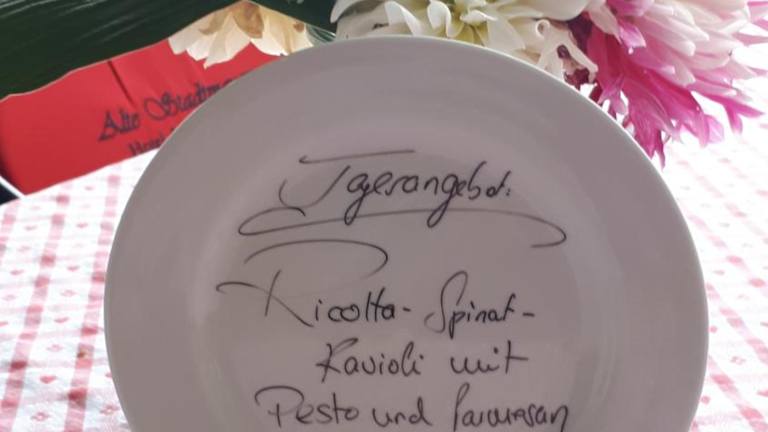 Alte Stadtm
Hotel
Tagesangebot:
Ricotta-Spinat-
Ravioli mit
Pesto und Parmesan